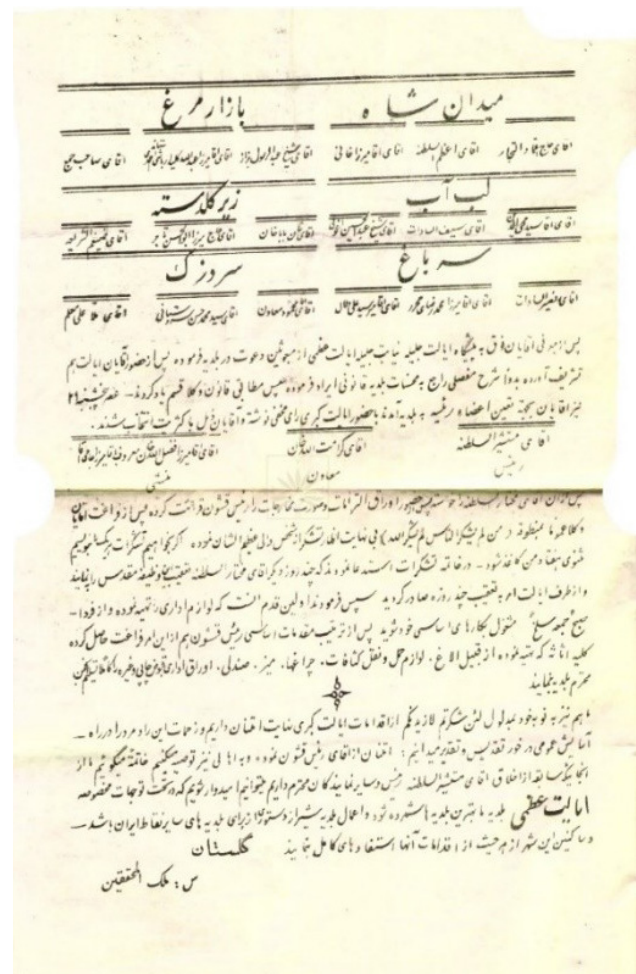 میدان شاه    بازار مرغ
آقای حاج بقاءالتجار    آقای اعظم السلطنه    آقای آقا میرزا خانی    آقای شیخ عبدالرسول بزاز    آقای صاحب جمع
لب آب    زیر گلدسته
آقای سیف السادات    آقای شیخ عبدالحسین    آقای حاج میرزا ابوالحسن تاجر
سه باغ    سردزک
آقای فخر السادات    آقای آقا میرزا محمد    آقای محمود معاون    آقای سید محمد حسن    آقای ملا علی معلم
پس از معرفی آقایان فوق به پیشگاه ایالت جلیله نیابت جلیله ایالت عظمی از مبعوثین دعوت در بلدیه فرموده پس از حضور آقایان ایالت هم
تشریف آورده بدواً شرح مفصلی راجع به محسنات بلدیه قانونی ایراد فرموده سپس مطابق قانون وکلا قسم یاد کردند. عصر پنجشنبه ۲۹
نیز آقایان بجهة تعیین اعضاء رئیسه به بلدیه آمده با حضور ایالت کبری رای مخفی نوشته و آقایان ذیل با کثریت انتخاب شدند.
آقای منتصر السلطنه    آقای کرامت الله خان    آقای آقا میرزا فضل الله خان
رئیس    معاون    منشی
پس از آن آقای مختار السلطنه را خواسته اوراق التزامات و صورت مخارجات را رئیس قشون قرائت کرده پس از فراغت آقایان
وکلا عموماً بمنطوقه (من لم یشکر الناس لم یشکر الله) بی نهایت اظهار تشکر از شخص والی عظیم الشان نموده اگر بخواهیم تشکرات هر یک را بنویسیم
مثنوی هفتاد من کاغذ شود - در خاتمه تشکرات استدعا نمودند که چند روز دیگر آقای مختار السلطنه تعقیب وظیفه مقدس را بنمایند
و از طرف ایالت امر به تعقیب چند روزه صادر گردید سپس فرمودند اولین قدم آنست که لوازم اداری را تهیه نموده و از فردا -
صبح جمعه سلخ مشغول بکارهای اساسی خود شوید پس از ترتیب مقدمات اساسی رئیش قشون هم از این امر فراغت حاصل کرده
کلیه اثاثه که تهیه نموده از قبیل الاغ. لوازم حمل و نقل کثافات. چراغها. میز. صندلی. اوراق اداری قبوض چاپی و غیره را کاملا تسلیم انجمن
محترم بلدیه بنمایند
ما هم نیز به نوبه خود بمدلول لئن شکرتم لازیدنکم از اقدامات ایالت کبری نهایت امتنان داریم و زحمات این راد مرد را در راه -
آسایش عمومی در خور تقدیس و تقدیر میدانیم: امتنان از آقای رئیس قشون نموده و به اهالی نیز توصیه میکنیم خاتمة میگوئیم ما از
آنجائیکه سابقه از اخلاق آقای منتصر السلطنه رئیس و سایر نمایندگان محترم داریم میتوانیم امیدوار شویم که در تحت توجهات مخصوصه
ایالت عظمی بلدیه ما بهترین بلدیه ها شمرده شود و اعمال بلدیه شیراز دستور برای بلدیه های سایر نقاط ایران باشد -
و ساکنین این شهر از هر حیث از اقدامات آنها استفاده های کامل بنمایند    گلستان
س: ملک المحققین